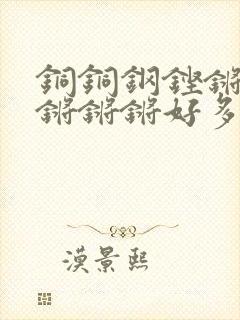 銅銅鋼鏗鏘
鏘鏘鏘好多
漠景熙